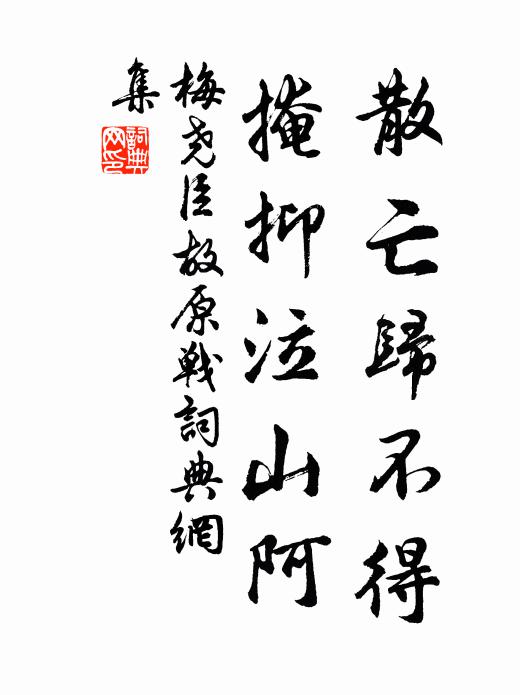 散亡歸不得
掩抑泣山阿
梅尧臣故原戰詞典網
集
詞典网印